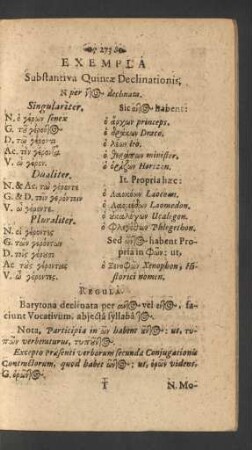 273
EXEMPLA
Substantiva Quintæ Declinationis,
N per declinata.
Singulariter.
N. ὁ γέρων senex
G. τῦ
D. τῷ γέροντι
Ac. τὸν γέροντα
V. ὦ γέρον.
Dualiter.
N. & Ac. τὼ γέροντε
G. & D. τοῖν γερόντοιν
V. ὦ γέροντε.
Pluraliter.
N. οἱ γέροντες
G. τῶν γερόντων
D. τοῖς γέρουσι
Ac. τοὺς γέροντας
V. ὦ γέροντες.
Sic habent:
ὁ ἄρχων princeps.
ὁ δράκων Draco.
ὁ λέων leo.
ὁ θεράπων minister.
ὁ ὁρίζων Horizon.
It. Propria hæc:
ὁ Λαοκόων Laocoon.
ὁ Λαομέδων Laomedon.
ὁ Ucalegon.
ὁ Φλεγέθων Phlegethon.
Sed habent Pro-
pria in Φῶν; ut,
ὁ Ξενοφῶν Xenophon, Hi-
storici nomen.
REGULA.
Barytona declinata per vel fa-
ciunt Vocativum, abjectâ syllabâ
Nota, Participia in ων habent ut,
verberaturus,
Excepto Præsenti verborum secundæ Conjugationis
Contractorum, quod habet ut, ὁρῶν videns,
G.
T N. Mo-